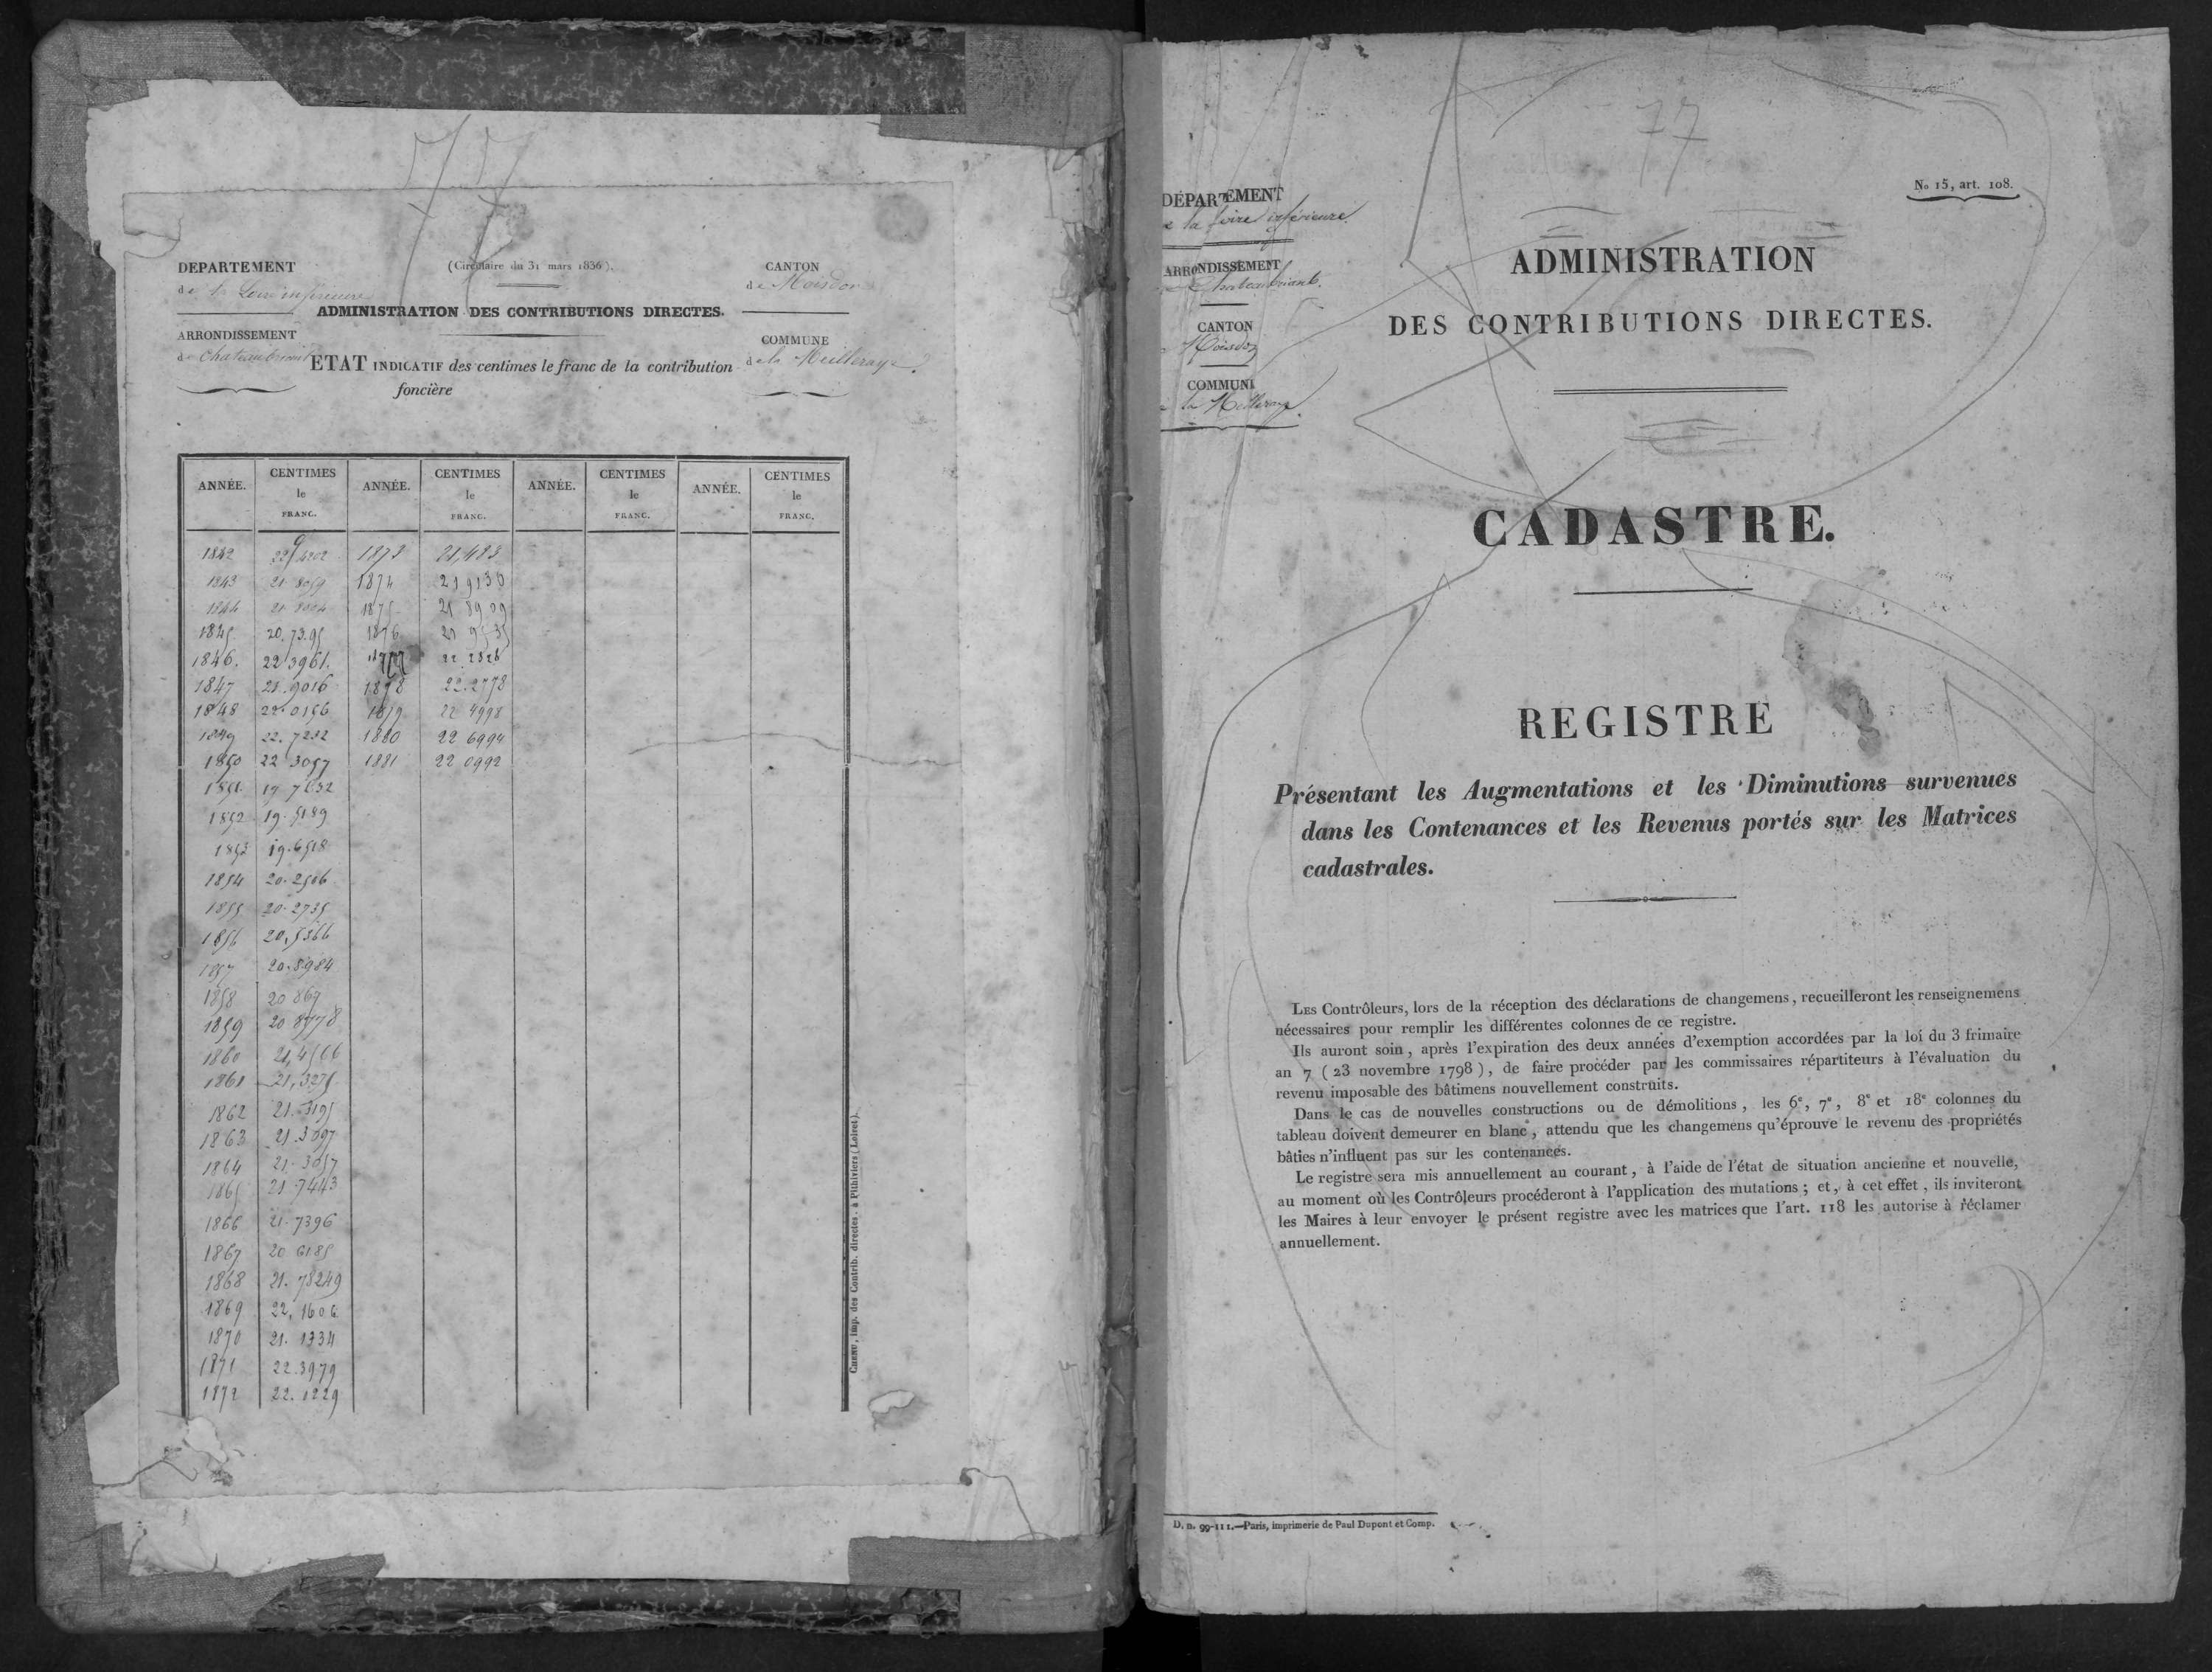 77
DEPARTEMENT
de la Loire inférieure
ARRONDISSEMENT
de Chateaubriant
(Circulaire du 31 mars 1836).
ADMINISTRATION DES CONTRIBUTIONS DIRECTES.
ETAT INDICATIF des centimes le franc de la contribution
foncière
CANTON
de Moisdon
COMMUNE
de la Meilleraye.
ANNÉE. CENTIMES le FRANC. ANNÉE. CENTIMES le FRANC. ANNÉE. CENTIMES le FRANC. ANNÉE. CENTIMES le FRANC.
1842 1873 21,483
1843 21.8059 1874 219130
1844 1875 21 8909
1845 20.73.95 1876
1846. 22 3961. 1877 22 2326
1847 21.9016 1878 22.2778
1848 22.0156 1879 22 4998
1849 22.7232 1880 22 6994
1850 22 3057 1881 22 0992
1851 19 7632
1852 19.5189
1853 19.6518
1854 20.2506
1855 20.2735
1856 20,5366
1857 20.8984
1858 20 869
1859 20 8778
1860 21,4566
1861 21,3275
1862 21.3195
1863 21.3097
1864 21.3057
1865 21 7443
1866 21.7396
1867 20 6185
1868 21.78249
1869 22,1606
1870 21.1334
1871 22.3979
1872 22.1229
CHENU, imp. des Contrib. directes, à Pithiviers (Loiret).
77
No 15, art. 108.
DÉPARTEMENT
de la Loire inférieure.
ARRONDISSEMENT
Chateaubriant.
CANTON
Moisdon
COMMUNE
la Meilleraye.
ADMINISTRATION
DES CONTRIBUTIONS DIRECTES.
CADASTRE.
REGISTRE
Présentant les Augmentations et les Diminutions survenues
dans les Contenances et les Revenus portés sur les Matrices
cadastrales.
LES Contrôleurs, lors de la réception des déclarations de changemens, recueilleront les renseignemens
nécessaires pour remplir les différentes colonnes de ce registre.
Ils auront soin, après l'expiration des deux années d'exemption accordées par la loi du 3 frimaire
an 7 (23 novembre 1798), de faire procéder par les commissaires répartiteurs à l'évaluation du
revenu imposable des bâtimens nouvellement construits.
Dans le cas de nouvelles constructions ou de démolitions, les 6e, 7e, 8e et 18e colonnes du
tableau doivent demeurer en blanc, attendu que les changemens qu'éprouve le revenu des propriétés
bâties n'influent pas sur les contenances.
Le registre sera mis annuellement au courant, à l'aide de l'état de situation ancienne et nouvelle,
au moment où les Contrôleurs procéderont à l'application des mutations; et, à cet effet, ils inviteront
les Maires à leur envoyer le présent registre avec les matrices que l'art. 118 les autorise à réclamer
annuellement.
D. n. 99-111.—Paris, imprimerie de Paul Dupont et Comp.